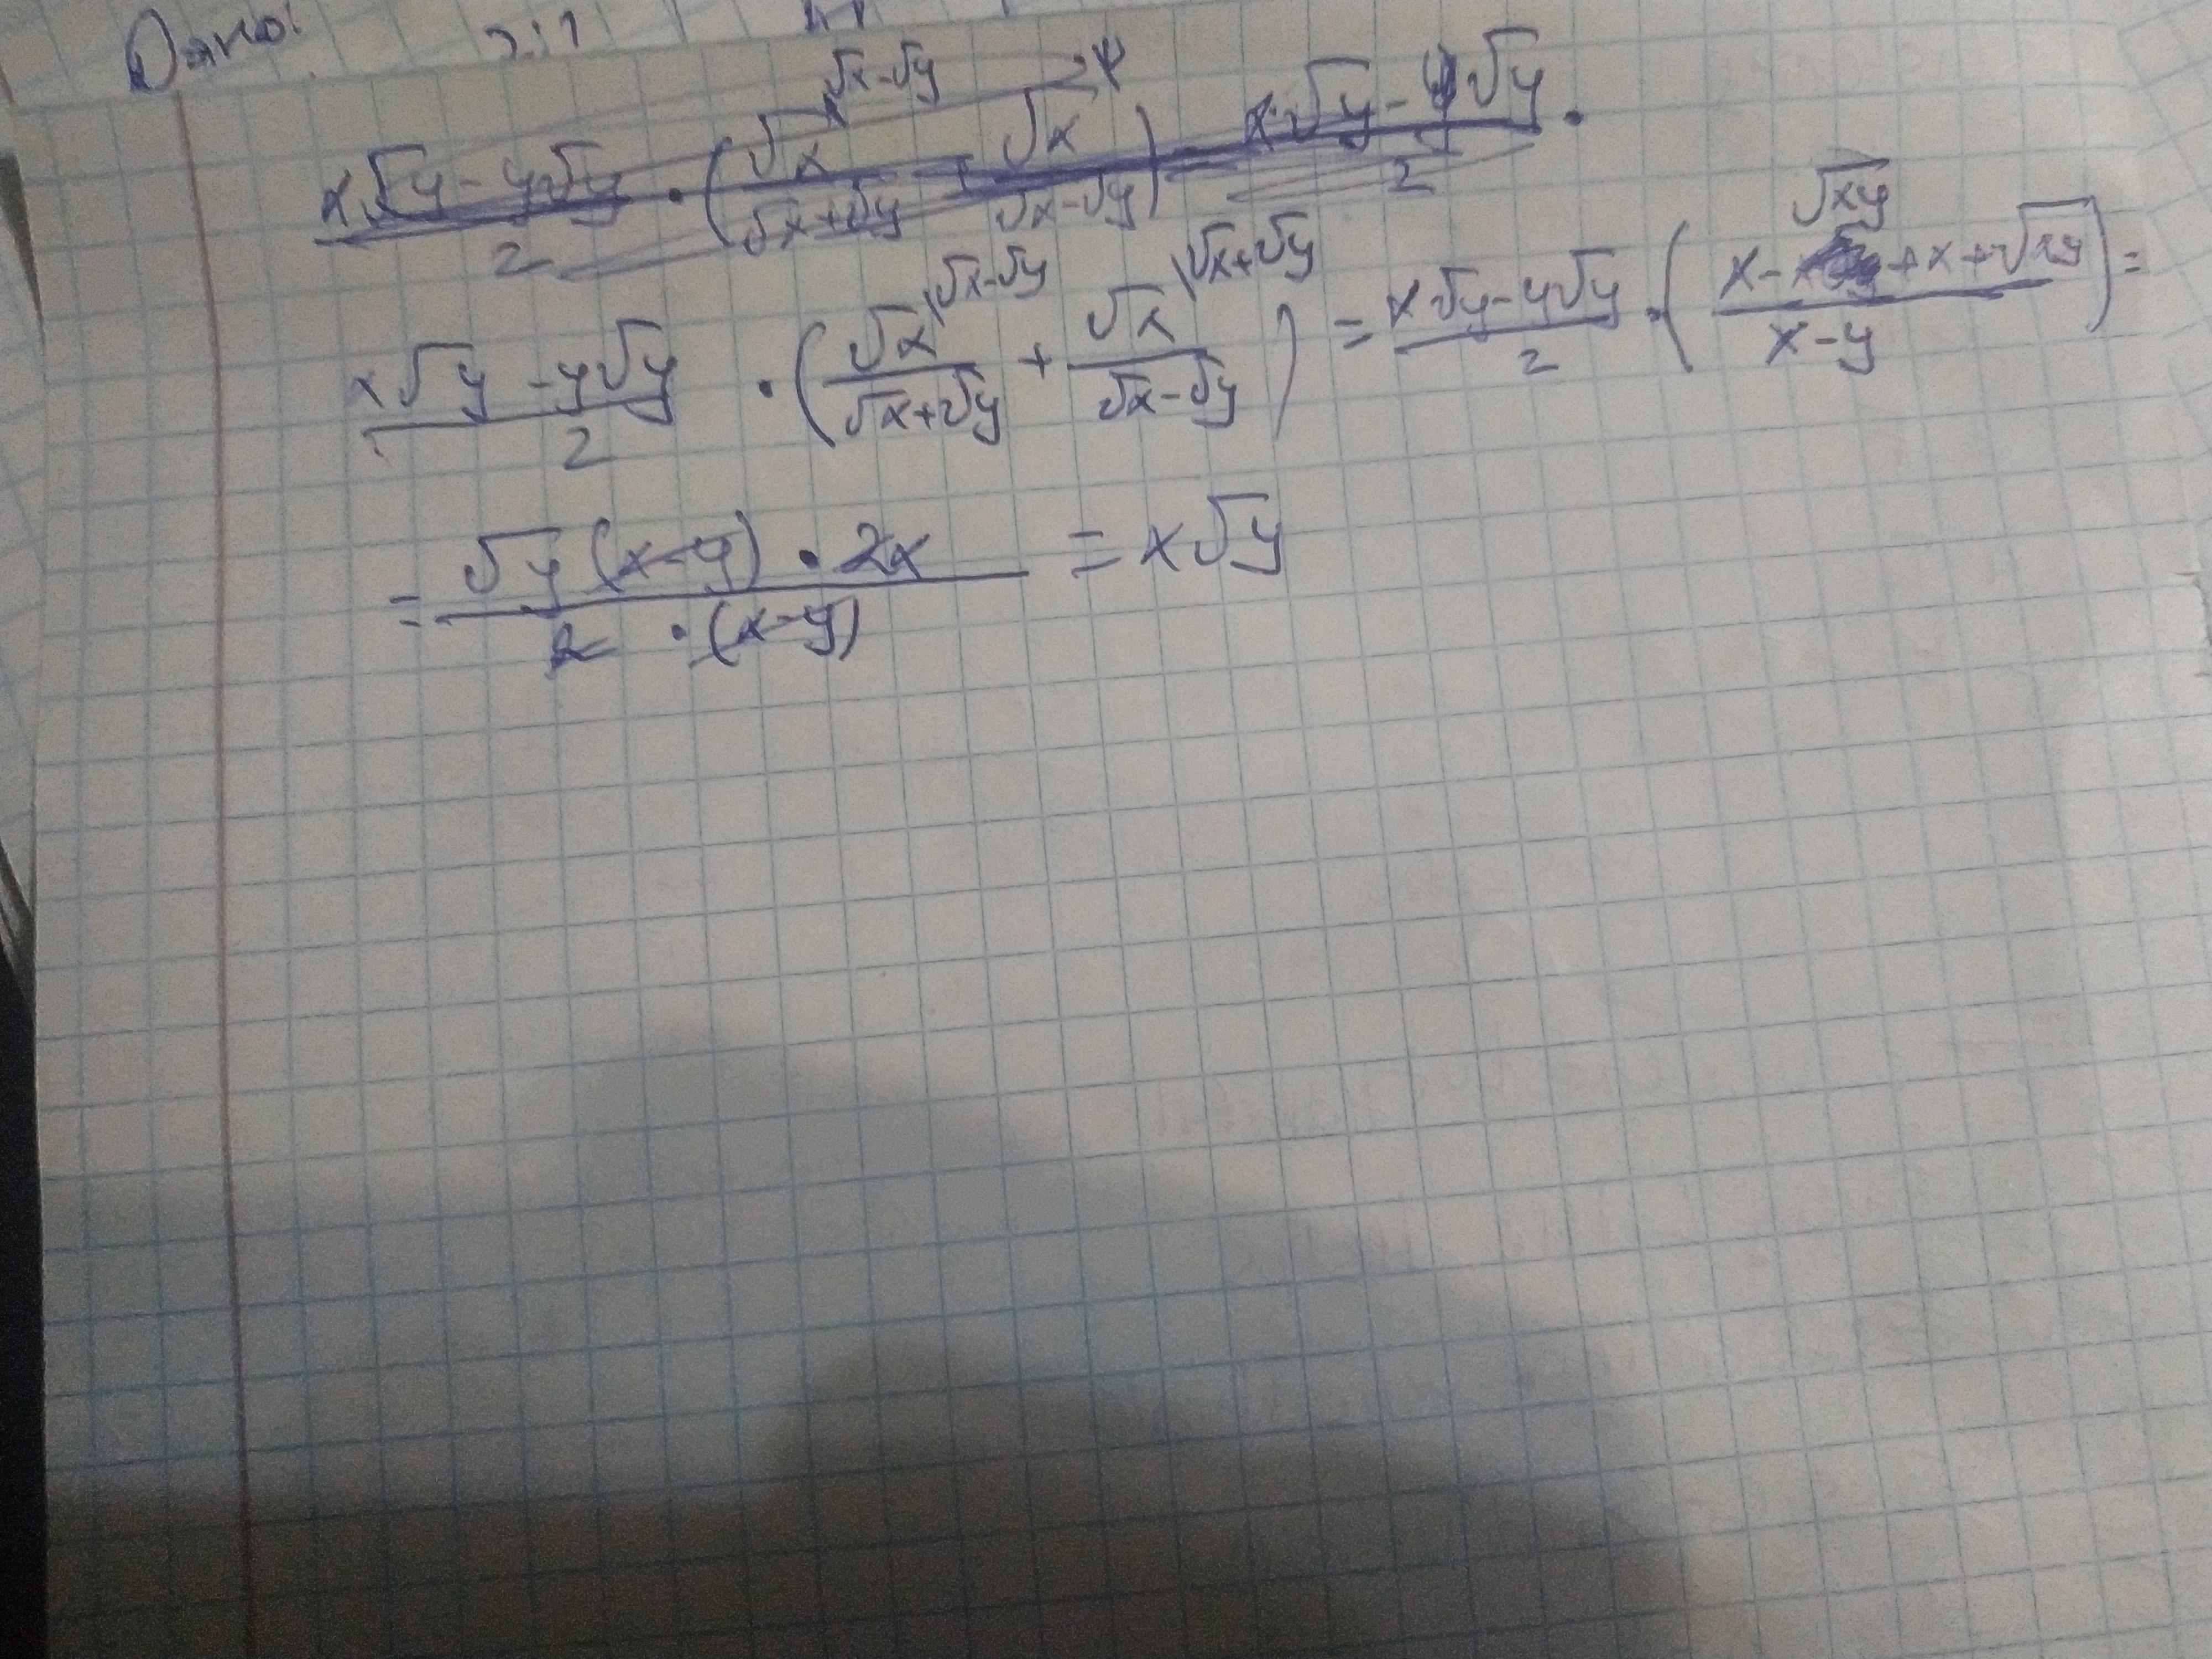 Дано:
x√y - y√y / 2 · (√x / √x+√y + √x / √x-√y) = x√y - y√y / 2 ·
x√y - y√y / 2 · (√x \√x-√y / √x+√y + √x \√x+√y / √x-√y) = x√y - y√y / 2 · (x - √xy + x + √xy / x-y) =
= √y (x-y) · 2x / 2 · (x-y) = x√y